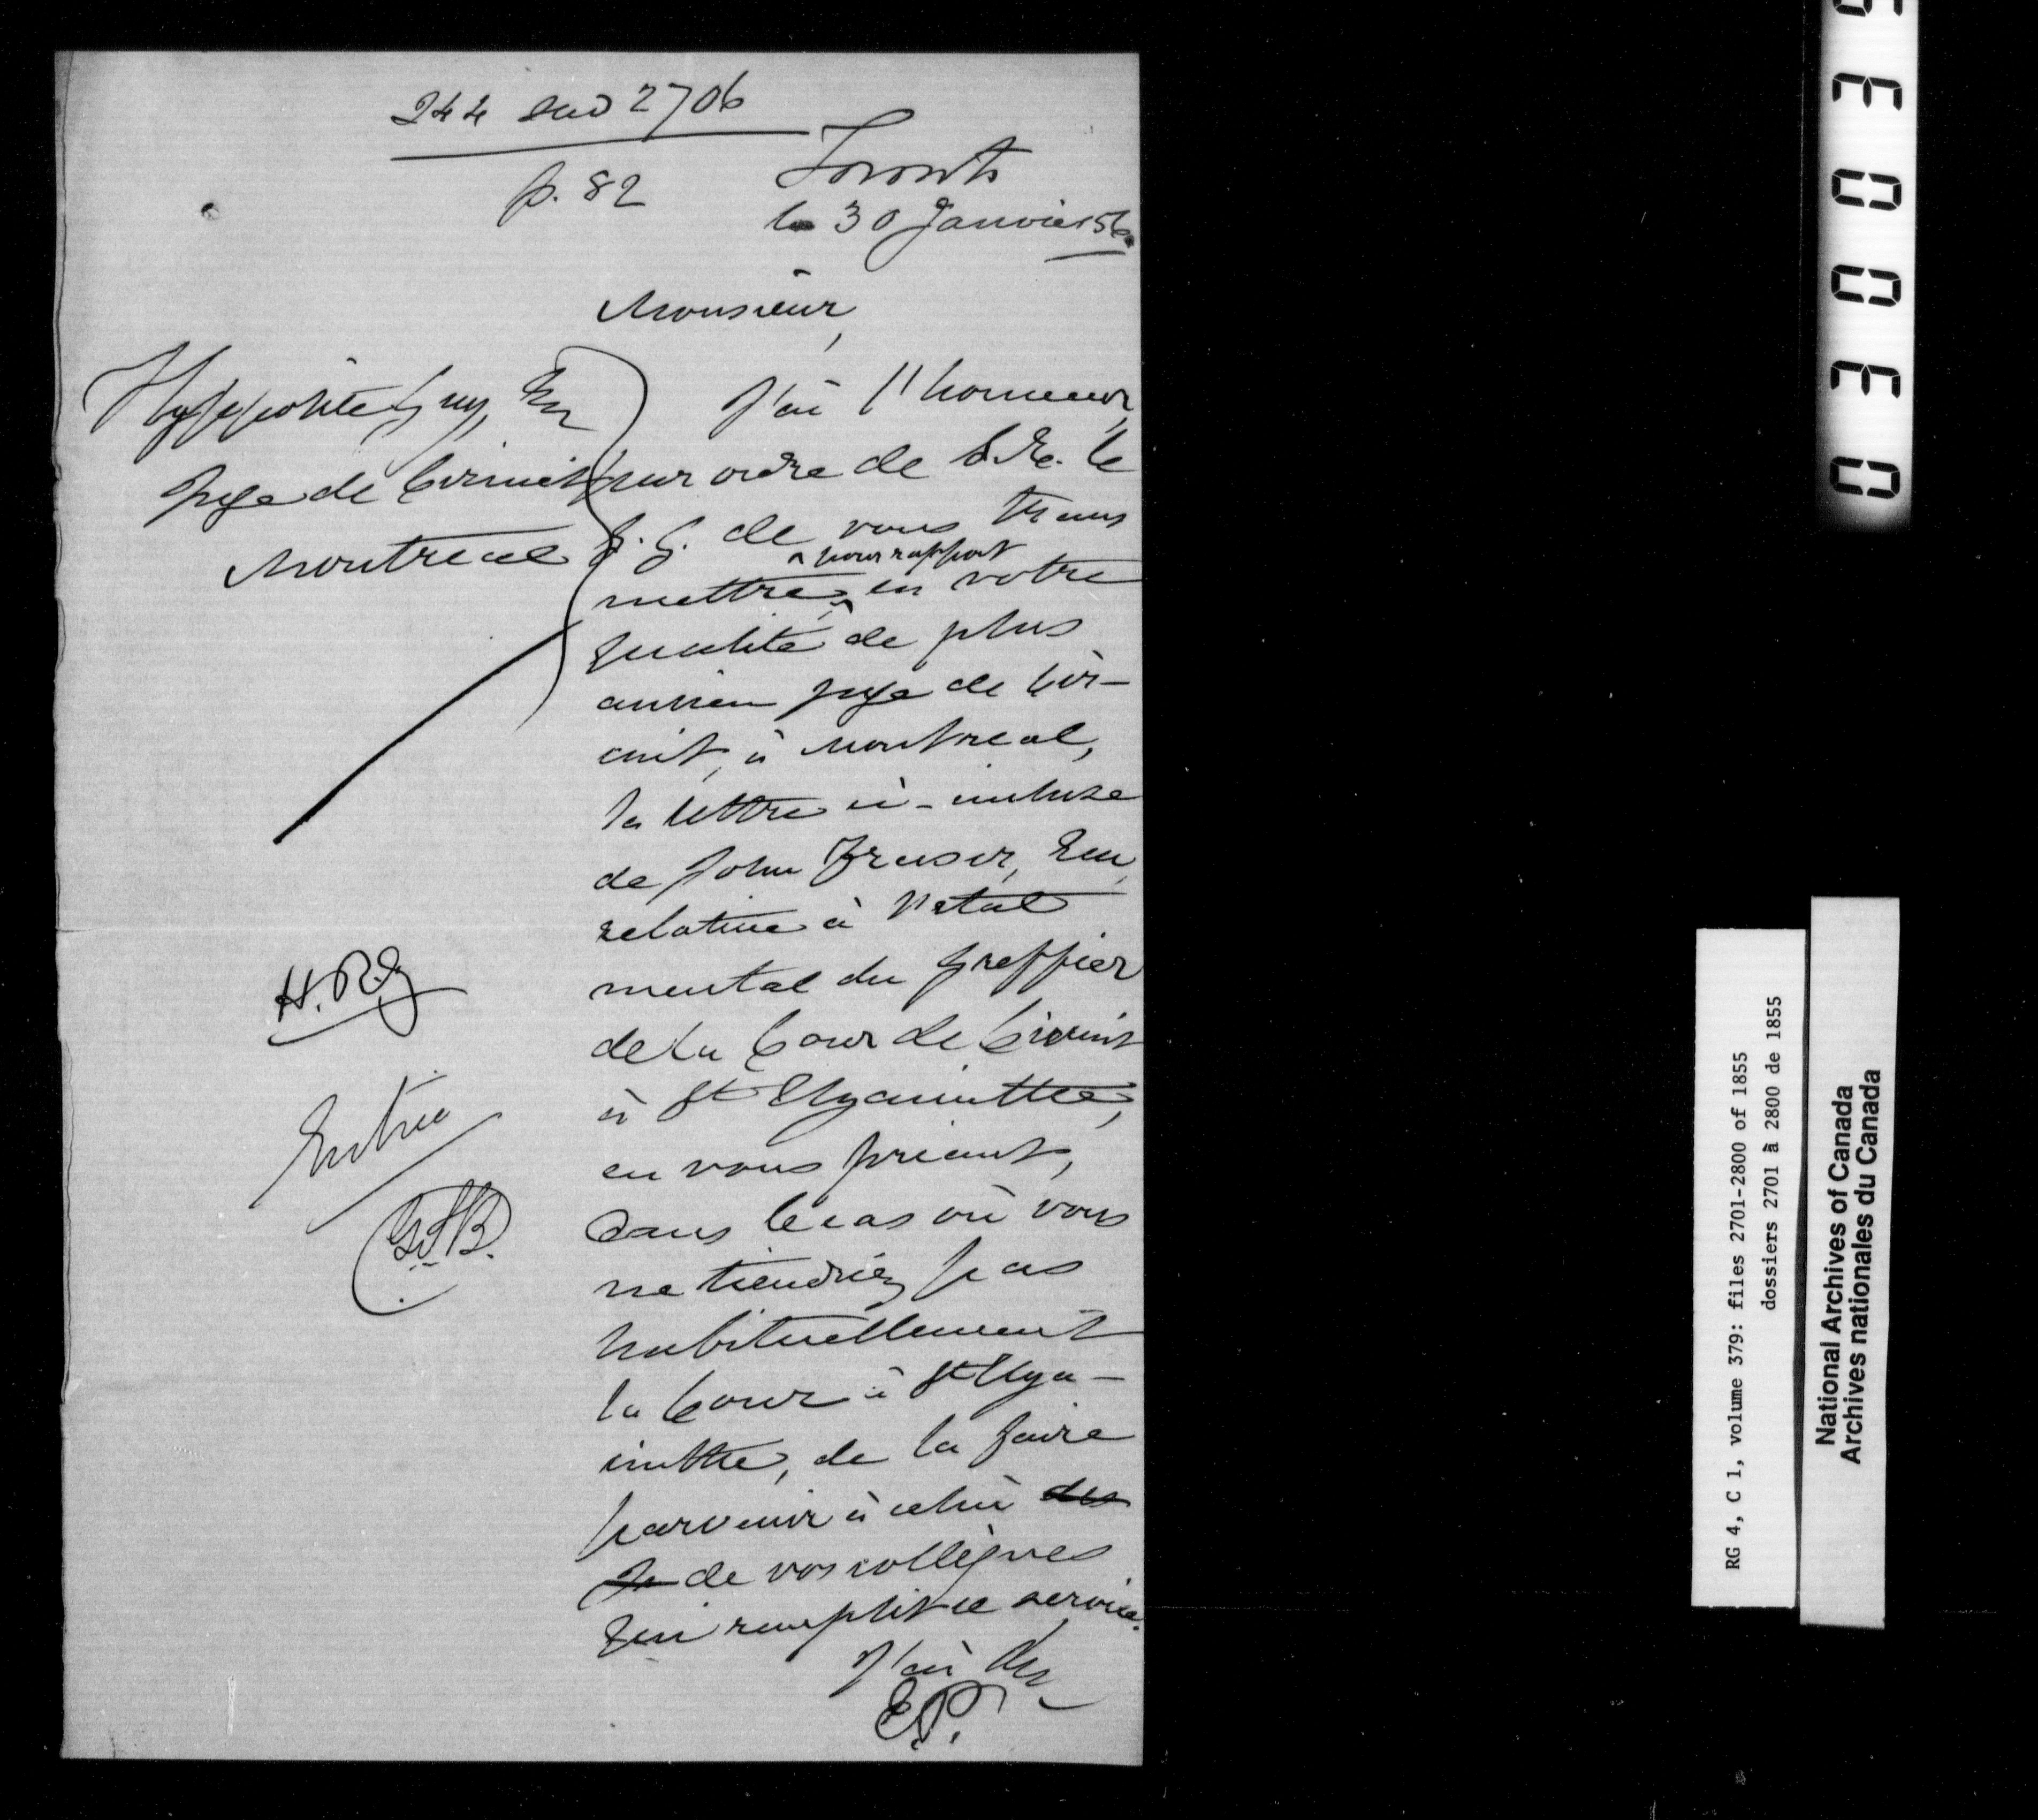 244 sur 2706
p. 82
Toronto
le 30 Janvier 56.
Monsieur,
Hyppolite Guy, Ecr
Juge de Circuit
Montreal
J'ai l'honneur,
par ordre de S. Ex. le
G. G. de vous trans
mettre, pour rapport en votre
qualité de plus
ancien juge de Cir-
cuit, à Montreal,
la lettre ci-incluse
de John Fraser, Ecr,
relative à l'état
mental du Greffier
de la Cour de Circuit
à St Hyacinthe,
en vous priant,
dans le cas où vous
ne tiendriez pas
habituellement
la Cour à St Hya-
cinthe, de la faire
parvenir à celui des
de vos collègues
qui remplit ce service.
J'ai &c
E.P.
Entrée
0 3 0 0 3
RG 4, C 1, volume 379: files 2701-2800 of 1855
dossiers 2701 à 2800 de 1855
National Archives of Canada
Archives nationales du Canada